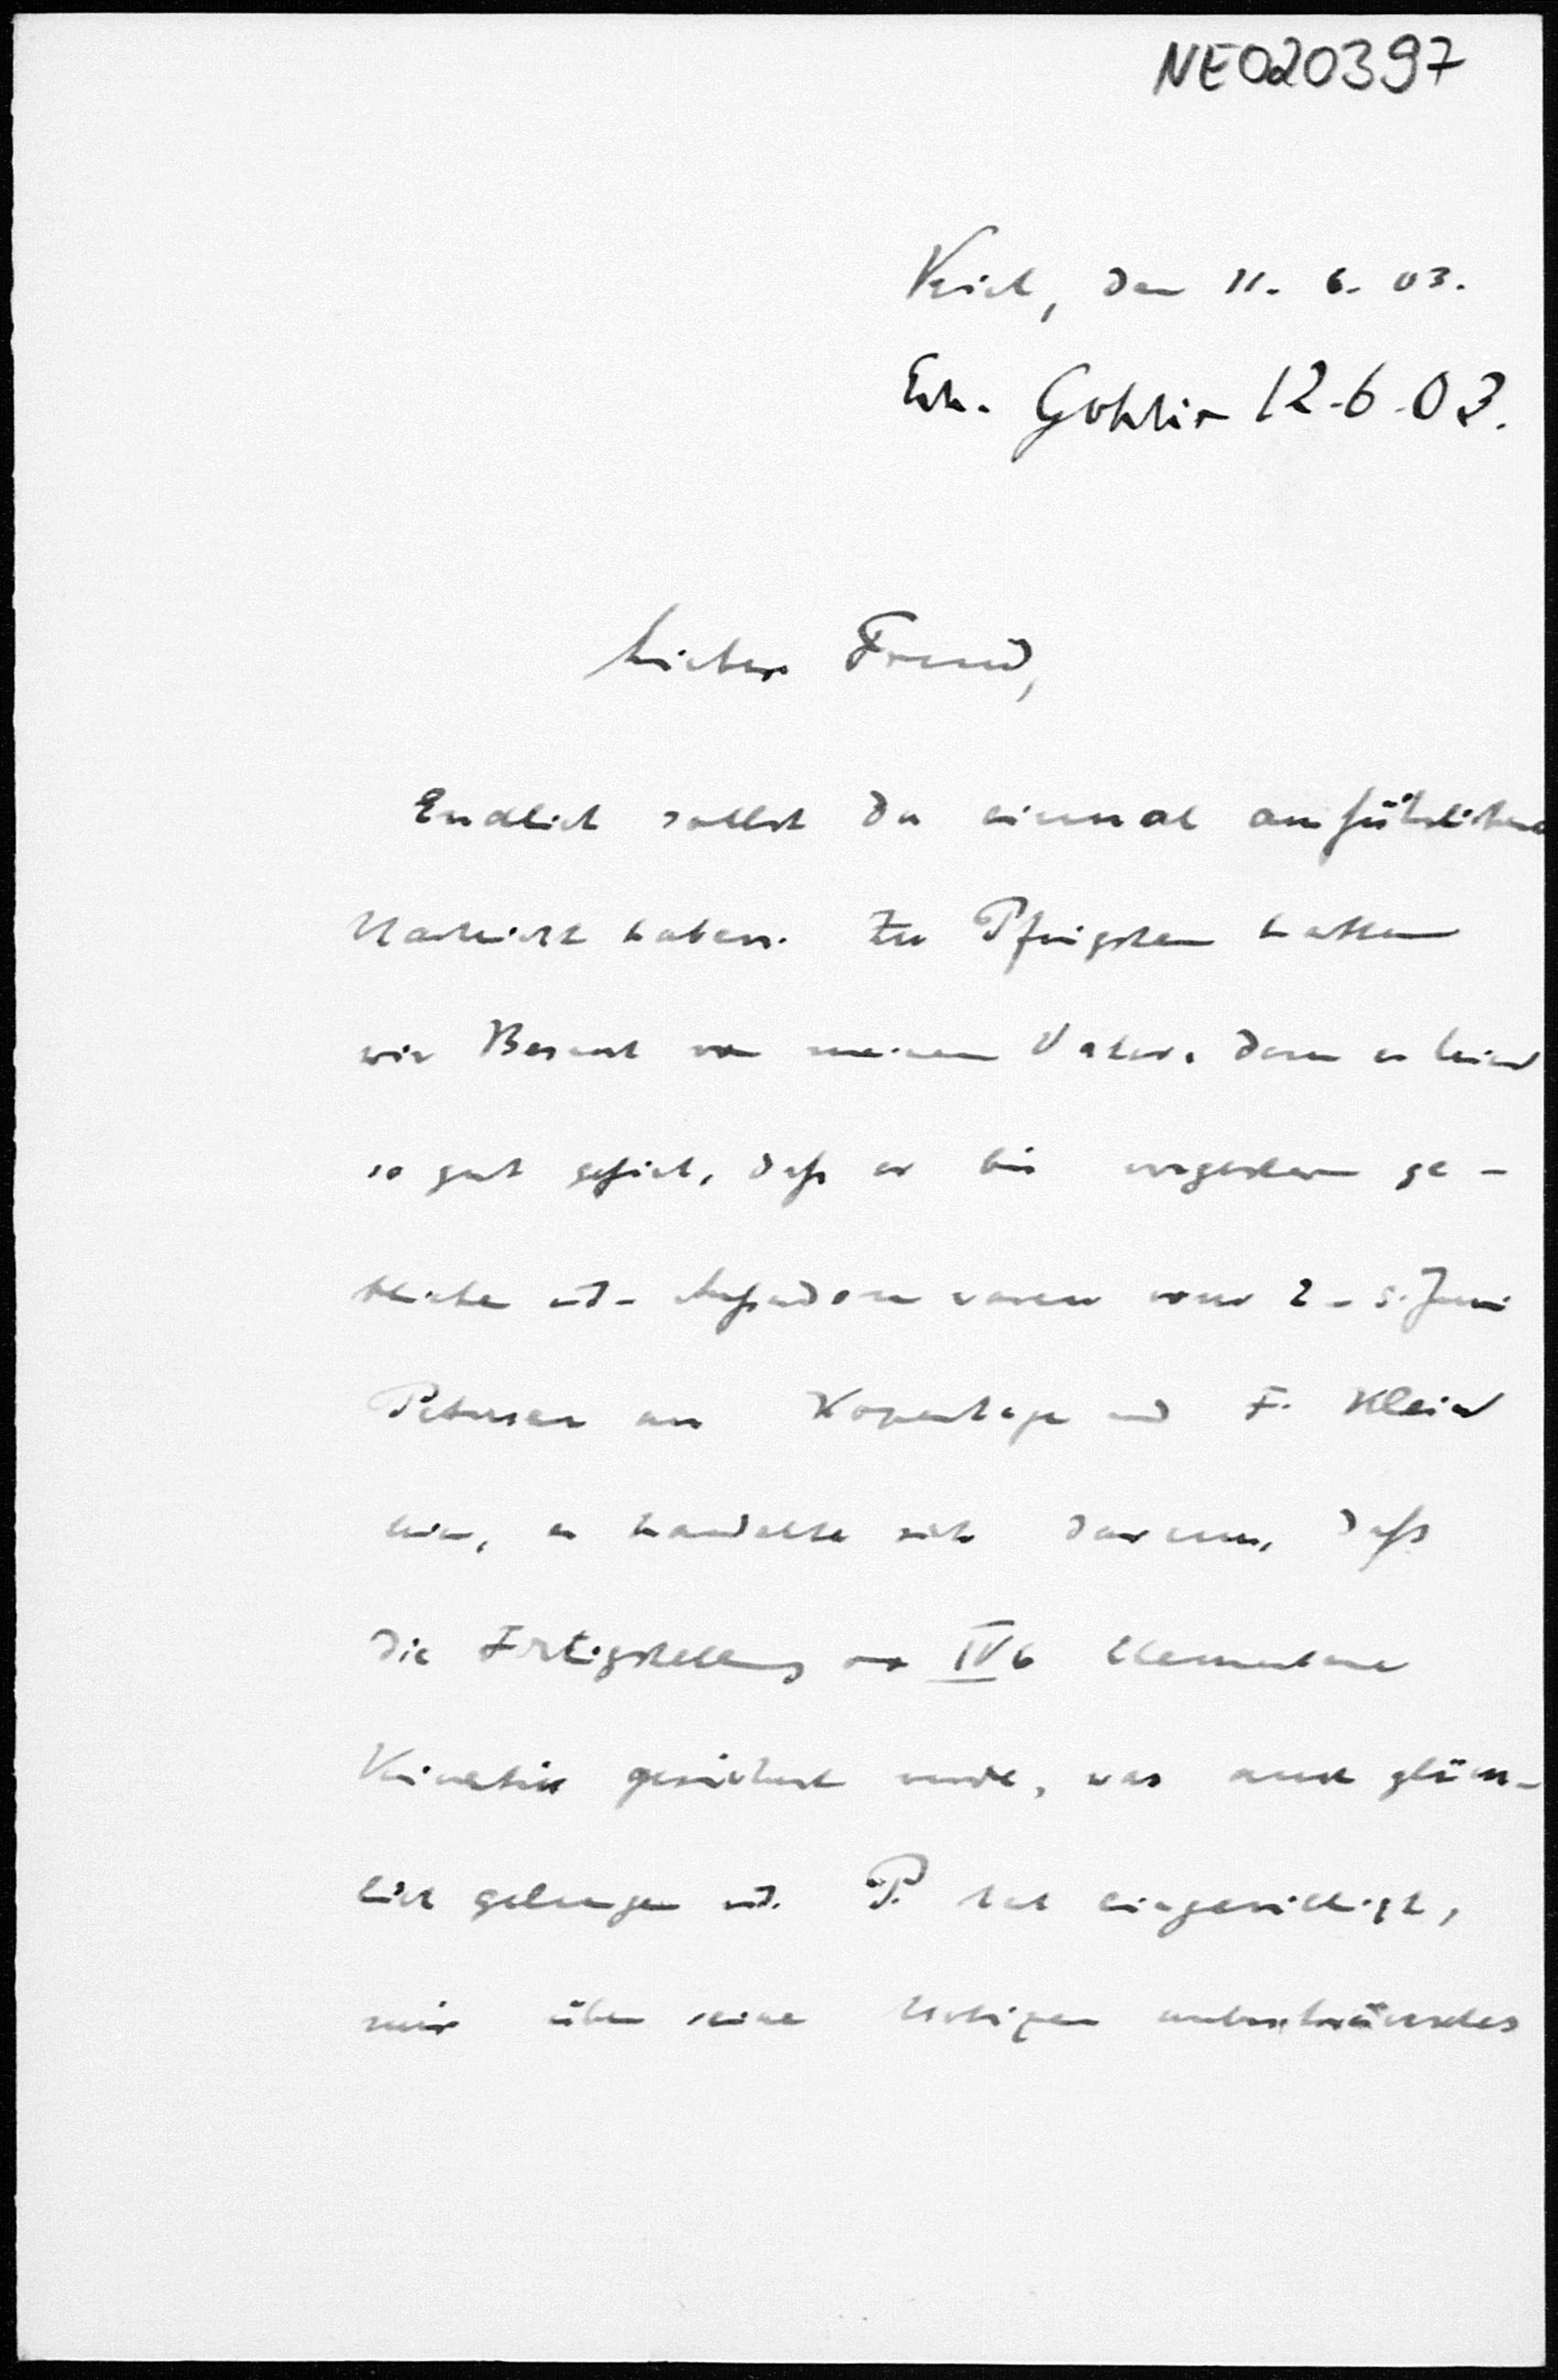 NE020397
Kiel, den 11. 6. 03.
Erh. Gohlis 12-6-03.
Lieber Freund,
Endlich sollst du einmal ausführlichere
Nachricht haben. Zu Pfingsten hatten
wir Besuch von meinem Vater, dem es hier
so gut gefiel, daß er bis vorgestern ge-
blieben ist. Außerdem waren vom 2-5. Juni
Petersen aus Kopenhagen und F. Klein
hier, es handelte sich darum, daß
die Fertigstellung von IV6 Elementare
Kinetik gesichert werde, was auch glück-
lich gelungen ist. P. hat eingewilligt,
mir über seine